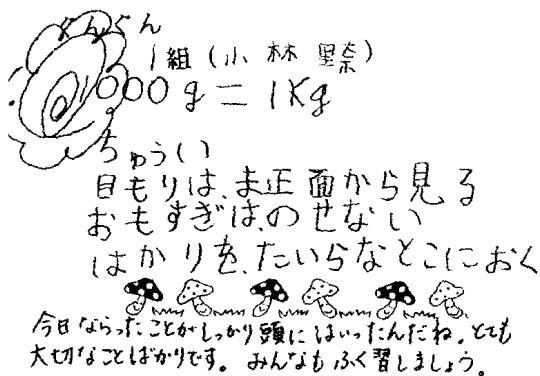 ぐんぐん
1組(小林里奈)
1000g=1Kg
ちゅうい
目もりは、ま正面から見る
おもすぎは、のせない
はかりを、たいらなとこにおく
今日ならったことがしっかり頭にはいったんだね。とても
大切なことばかりです。みんなもふく習しましょう。